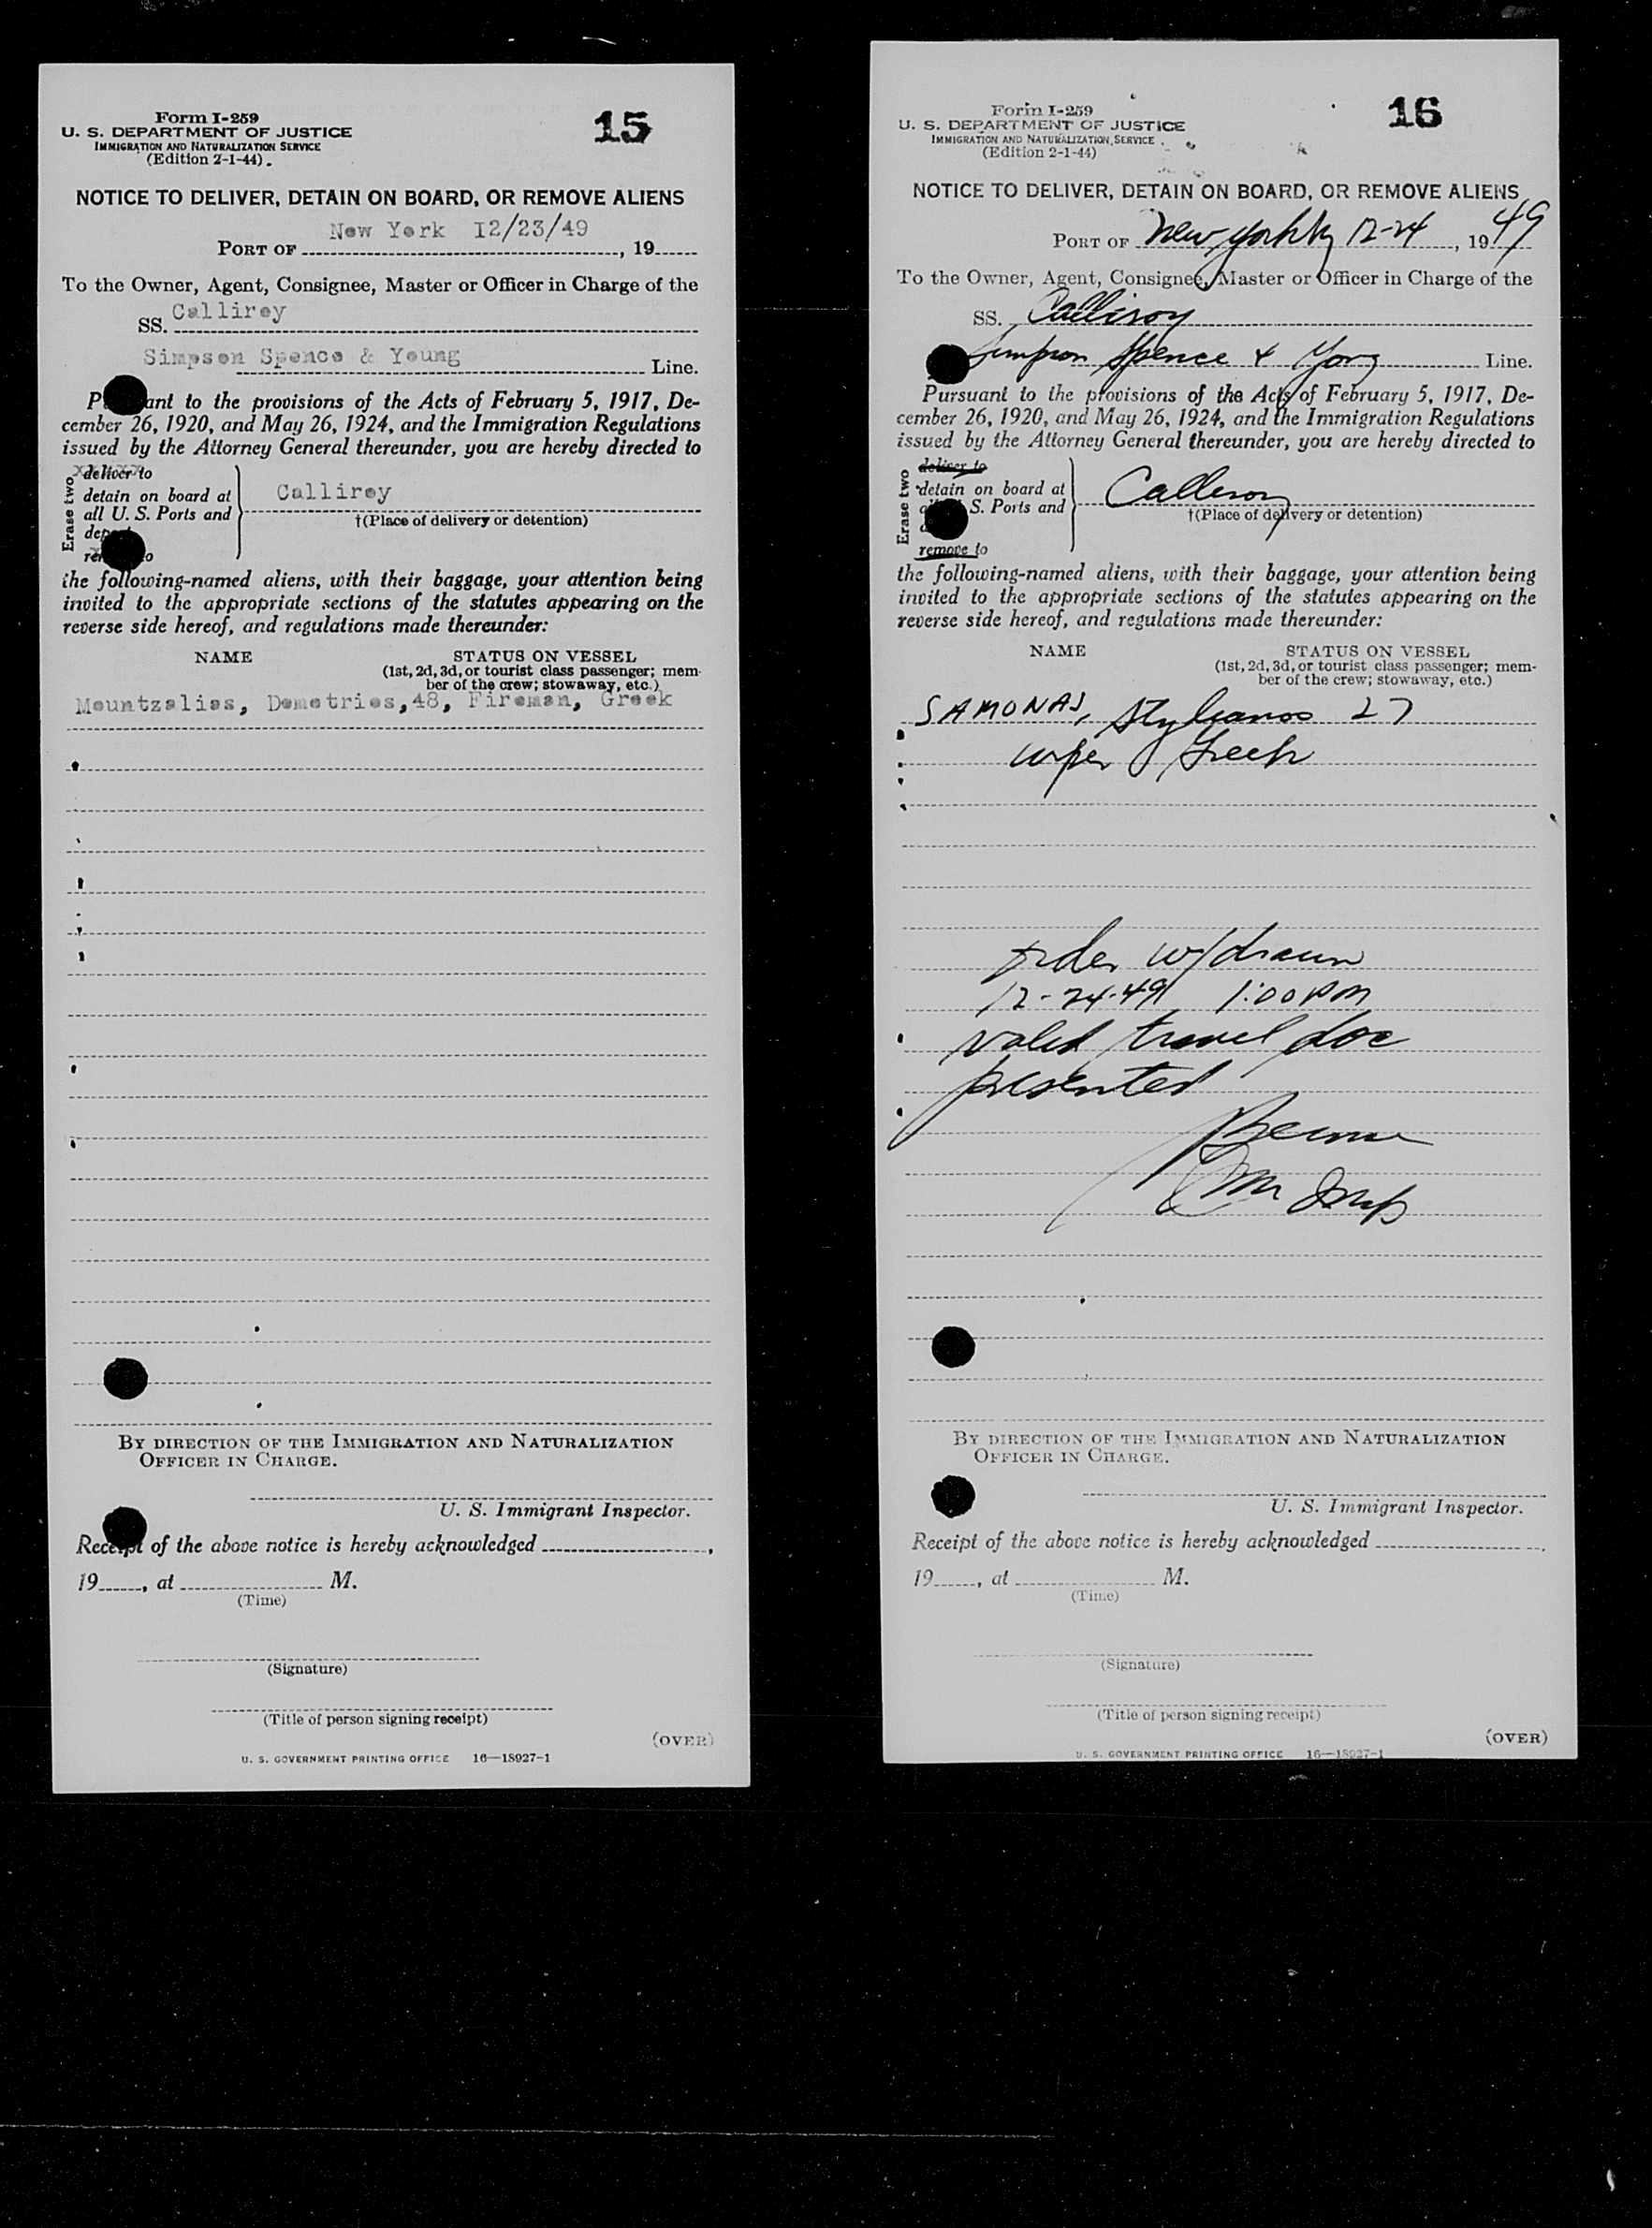 Form I-259
15
U. S. DEPARTMENT OF JUSTICE
IMMIGRATION AND NATURALIZATION SERVICE
(Edition 2-1-44)
NOTICE TO DELIVER, DETAIN ON BOARD, OR REMOVE ALIENS
New York I2/23/49
PORT OF , 19
To the Owner, Agent, Consignee, Master or Officer in Charge of the
SS. Calliroy
Simpson Spence & Young Line.
ant to the provisions of the Acts of February 5, 1917, De-
cember 26, 1920, and May 26, 1924, and the Immigration Regulations
issued by the Attorney General thereunder, you are hereby directed to
Erase two
deliver to
detain on board at
all U. S. Ports and
Calliroy
†(Place of delivery or detention)
the following-named aliens, with their baggage, your attention being
invited to the appropriate sections of the statutes appearing on the
reverse side hereof, and regulations made thereunder:
NAME STATUS ON VESSEL
(1st, 2d, 3d, or tourist class passenger; mem-
ber of the crew; stowaway, etc.)
Mountzalias, Demetrios, 48, Fireman, Greek
BY DIRECTION OF THE IMMIGRATION AND NATURALIZATION
OFFICER IN CHARGE.
U. S. Immigrant Inspector.
Receipt of the above notice is hereby acknowledged ,
19 , at M.
(Time)
(Signature)
(Title of person signing receipt)
(OVER)
U. S. GOVERNMENT PRINTING OFFICE 16—18927-1
Form I-259
16
U. S. DEPARTMENT OF JUSTICE
IMMIGRATION AND NATURALIZATION SERVICE
(Edition 2-1-44)
NOTICE TO DELIVER, DETAIN ON BOARD, OR REMOVE ALIENS
PORT OF New York NY 12-24, 1949
To the Owner, Agent, Consignee, Master or Officer in Charge of the
SS. Calliroy
Simpson Spence & Yong Line.
Pursuant to the provisions of the Acts of February 5, 1917, De-
cember 26, 1920, and May 26, 1924, and the Immigration Regulations
issued by the Attorney General thereunder, you are hereby directed to
Erase two
deliver to
detain on board at
S. Ports and
remove to
Calliroy
†(Place of delivery or detention)
the following-named aliens, with their baggage, your attention being
invited to the appropriate sections of the statutes appearing on the
reverse side hereof, and regulations made thereunder:
NAME STATUS ON VESSEL
(1st, 2d, 3d, or tourist class passenger; mem-
ber of the crew; stowaway, etc.)
SAMONAS, Stylianos 27
wiper Greek
order w/drawn
12-24-49 1:00 PM
valid travel doc
presented
Imm Insp
BY DIRECTION OF THE IMMIGRATION AND NATURALIZATION
OFFICER IN CHARGE.
U. S. Immigrant Inspector.
Receipt of the above notice is hereby acknowledged ,
19 , at M.
(Time)
(Signature)
(Title of person signing receipt)
(OVER)
U. S. GOVERNMENT PRINTING OFFICE 16—18927-1